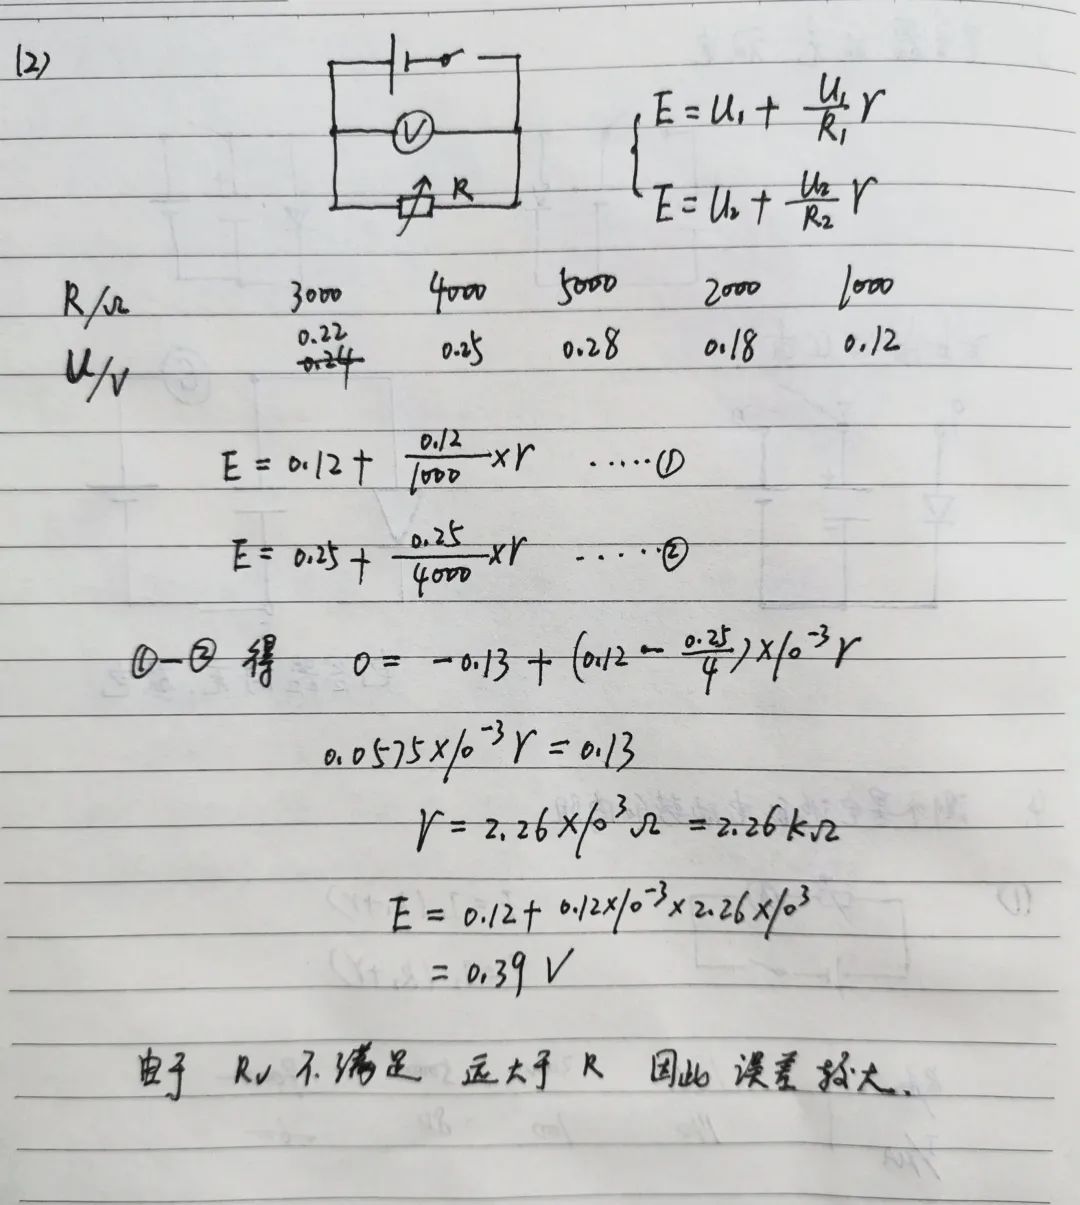 (2)
V
R
E = U₁ + U₁/R₁ r
E = U₂ + U₂/R₂ r
R/Ω 3000 4000 5000 2000 1000
0.22
U/V 0.24 0.25 0.28 0.18 0.12
E = 0.12 + 0.12/1000 × r ·····①
E = 0.25 + 0.25/4000 × r ·····②
①-② 得 0 = -0.13 + (0.12 - 0.25/4) × 10⁻³ r
0.0575 × 10⁻³ r = 0.13
r = 2.26 × 10³ Ω = 2.26 kΩ
E = 0.12 + 0.12 × 10⁻³ × 2.26 × 10³
= 0.39 V
由于 Rv 不满足 远大于 R 因此 误差较大.